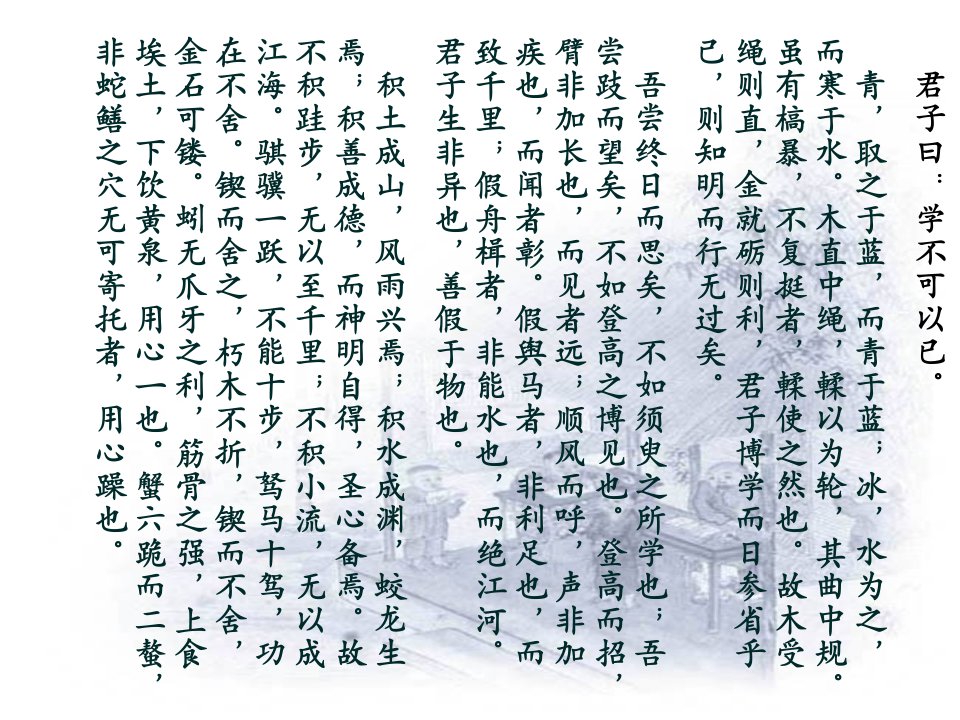 君子曰：学不可以已。
青，取之于蓝，而青于蓝；冰，水为之，
而寒于水。木直中绳，輮以为轮，其曲中规。
虽有槁暴，不复挺者，輮使之然也。故木受
绳则直，金就砺则利，君子博学而日参省乎
己，则知明而行无过矣。
吾尝终日而思矣，不如须臾之所学也；吾
尝跂而望矣，不如登高之博见也。登高而招，
臂非加长也，而见者远；顺风而呼，声非加
疾也，而闻者彰。假舆马者，非利足也，而
致千里；假舟楫者，非能水也，而绝江河。
君子生非异也，善假于物也。
积土成山，风雨兴焉；积水成渊，蛟龙生
焉；积善成德，而神明自得，圣心备焉。故
不积跬步，无以至千里；不积小流，无以成
江海。骐骥一跃，不能十步，驽马十驾，功
在不舍。锲而舍之，朽木不折，锲而不舍，
金石可镂。蚓无爪牙之利，筋骨之强，上食
埃土，下饮黄泉，用心一也。蟹六跪而二螯，
非蛇鳝之穴无可寄托者，用心躁也。